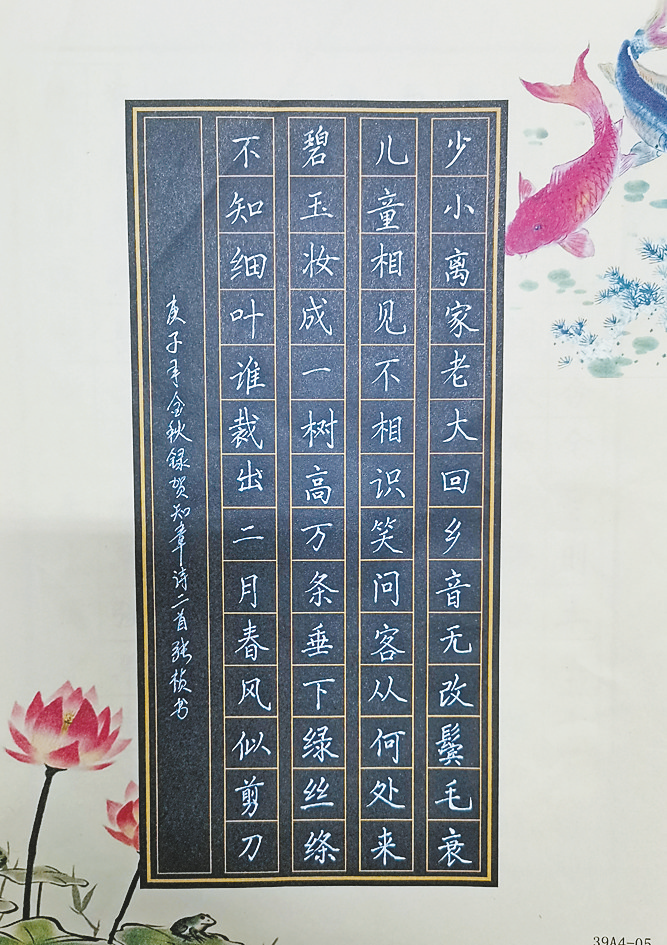 少小离家老大回乡音无改鬓毛衰
儿童相见不相识笑问客从何处来
碧玉妆成一树高万条垂下绿丝绦
不知细叶谁裁出二月春风似剪刀
庚子年金秋録贺知章诗二首张桢书
39A4-05